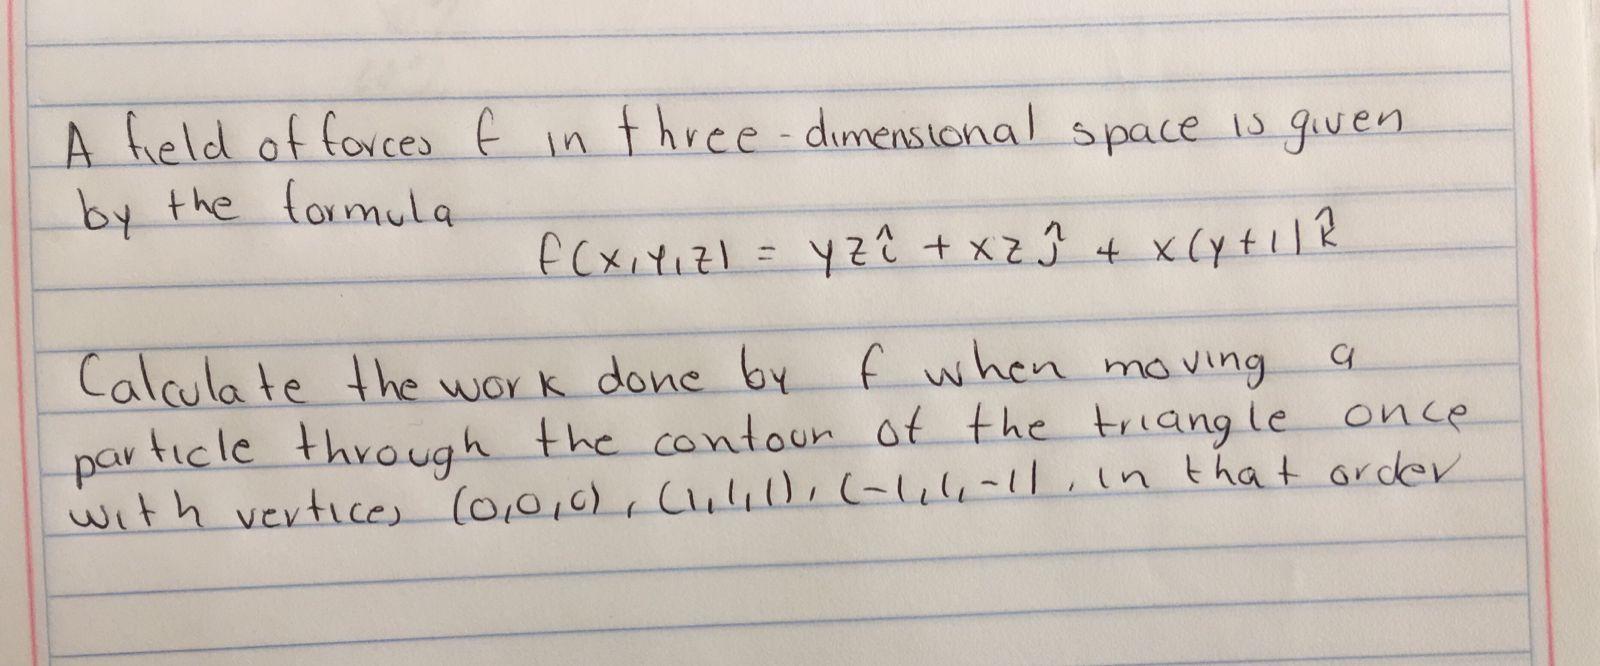 A field of forces f in three-dimensional space is given
by the formula
f(x,y,z) = yzî + xzĵ + x(y+1)k̂
Calculate the work done by f when moving a
particle through the contour of the triangle once
with vertices (0,0,0), (1,1,1), (-1,1,-1), in that order